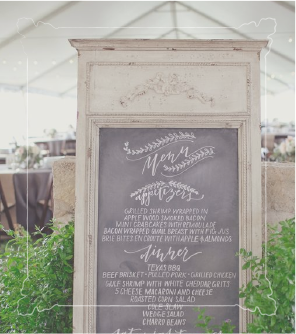 Menu
appetizers
GRILLED SHRIMP WRAPPED IN
APPLE WOOD SMOKED BACON
MINI CRABCAKES WITH REMOULADE
BACON WRAPPED QUAIL BREAST WITH FIG JUS
BRIE BITES EN CROUTE WITH APPLE & ALMONDS
dinner
TEXAS BBQ
BEEF BRISKET - PULLED PORK - GRILLED CHICKEN
GULF SHRIMP WITH WHITE CHEDDAR GRITS
5 CHEESE MACARONI AND CHEESE
ROASTED CORN SALAD
COLE SLAW
WEDGE SALAD
CHARRO BEANS